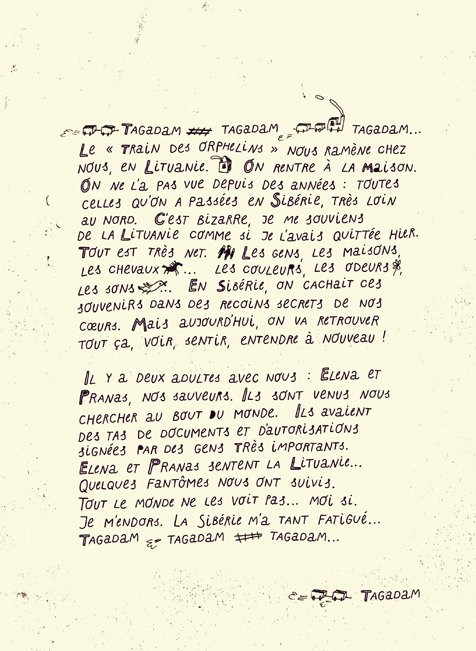 Tagadam tagadam tagadam...
Le « train des orphelins » nous ramène chez
nous, en Lituanie. On rentre à la maison.
On ne l'a pas vue depuis des années : toutes
celles qu'on a passées en Sibérie, très loin
au nord. C'est bizarre, je me souviens
de la Lituanie comme si je l'avais quittée hier.
Tout est très net. Les gens, les maisons,
les chevaux... les couleurs, les odeurs,
les sons... En Sibérie, on cachait ces
souvenirs dans des recoins secrets de nos
cœurs. Mais aujourd'hui, on va retrouver
tout ça, voir, sentir, entendre à nouveau !
Il y a deux adultes avec nous : Elena et
Pranas, nos sauveurs. Ils sont venus nous
chercher au bout du monde. Ils avaient
des tas de documents et d'autorisations
signées par des gens très importants.
Elena et Pranas sentent la Lituanie...
Quelques fantômes nous ont suivis.
Tout le monde ne les voit pas... moi si.
Je m'endors. La Sibérie m'a tant fatigué...
Tagadam tagadam tagadam...
Tagadam